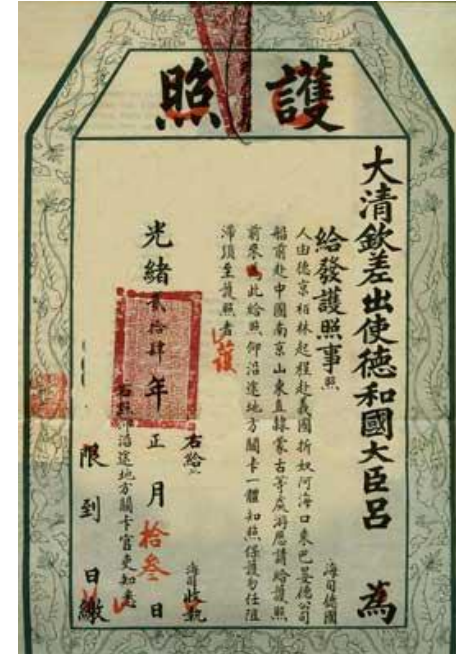 護照
大清欽差出使德和國大臣呂 為
給發護照事照 德國
人由德京栢林起程赴義國折奴河海口來巴晏德公司
船前赴中國南京山東直隸蒙古等處游歷請給護照
前來為此給照仰沿途地方關卡一體知照保護勿任阻
滯須至護照者
護
右給 收執
光緒貳拾肆年正月拾叁日
右照仰沿途地方關卡官吏知悉
限到 日繳